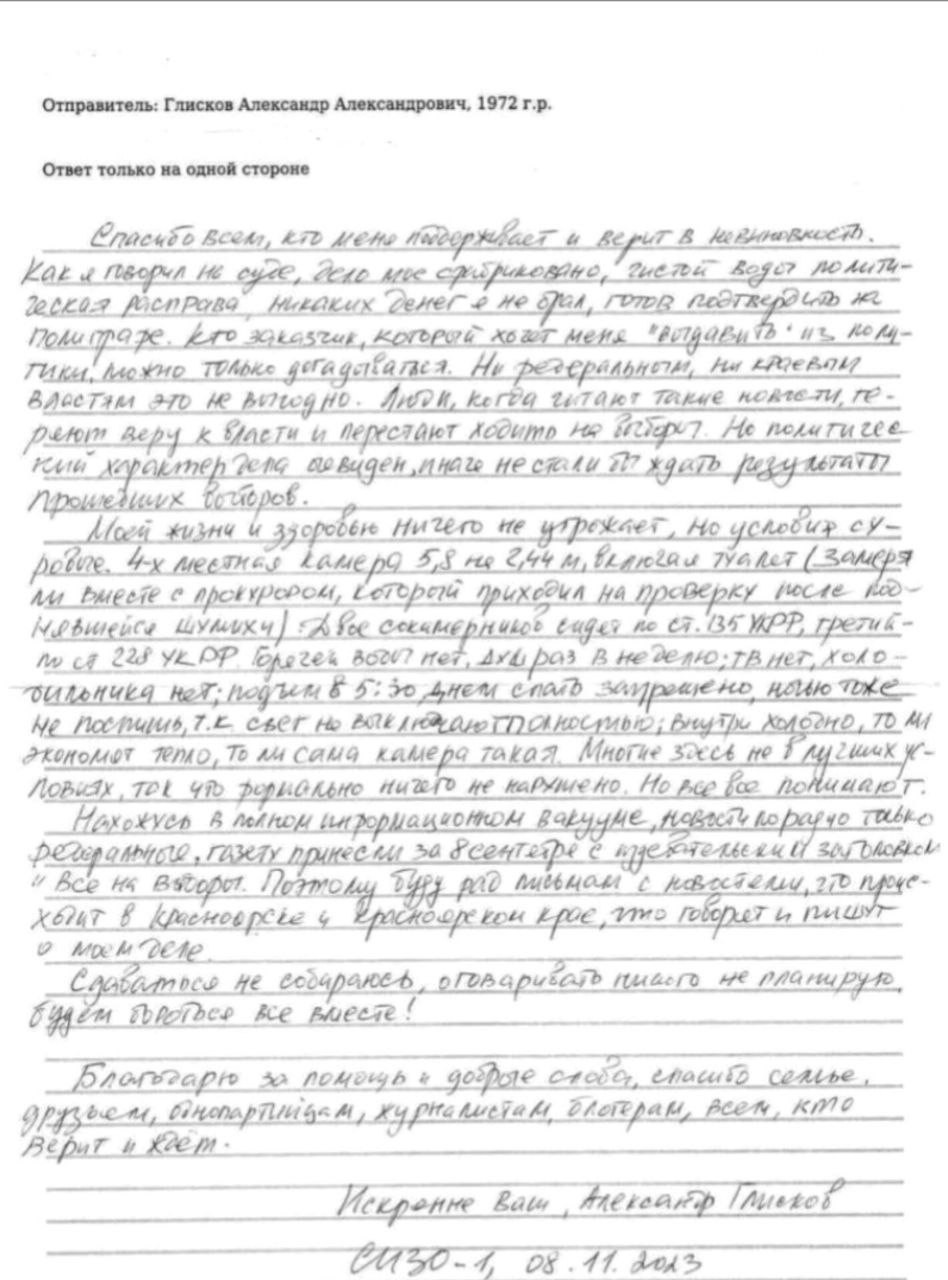 Отправитель: Глисков Александр Александрович, 1972 г.р.
Ответ только на одной стороне
Спасибо всем, кто меня поддерживает и верит в невиновность.
Как я говорил на суде, дело мое сфабриковано, чистой воды полити-
ческая расправа, никаких денег я не брал, готов подтвердить на
полиграфе. Кто заказчик, который хочет меня "выдавить" из поли-
тики, можно только догадываться. Ни федеральным, ни краевым
властям это не выгодно. Люди, когда читают такие новости, те-
ряют веру к власти и перестают ходить на выборы. Но политичес
кий характер дела очевиден, иначе не стали бы ждать результаты
прошедших выборов.
Моей жизни и здоровью ничего не угрожает, но условия су-
ровые. 4-х местная камера 5,8 на 2,44 м, включая туалет (замеря
ли вместе с прокурором, который приходил на проверку после под-
нявшейся шумихи). Двое сокамерников сидят по ст. 135 УК РФ, третий-
по ст 228 УК РФ. Горячей воды нет, душ раз в неделю; ТВ нет, холо-
дильника нет; подъем в 5:30, днем спать запрещено, ночью тоже
не поспишь, т.к. свет не выключают полностью; внутри холодно, то ли
экономят тепло, то ли сама камера такая. Многие здесь не в лучших ус-
ловиях, так что формально ничего не нарушено. Но все все понимают.
Нахожусь в полном информационном вакууме, новости по радио только
федеральные, газету принесли за 8 сентября с заголовком
"Все на выборы. Поэтому буду рад письмам с новостями, что проис-
ходит в Красноярске и Красноярском крае, что говорят и пишут
о моем деле.
Сдаваться не собираюсь, оговаривать никого не планирую,
будем бороться все вместе!
Благодарю за помощь и добрые слова, спасибо семье,
друзьям, однопартийцам, журналистам, блогерам, всем, кто
верит и ждёт.
Искренне Ваш, Александр Глисков
СИЗО-1, 08.11.2023